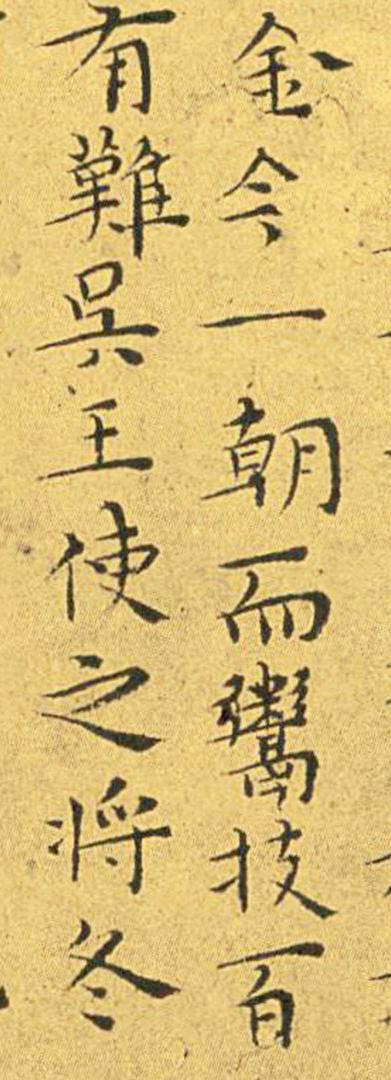 金今一朝而鬻技百
有難吳王使之將冬